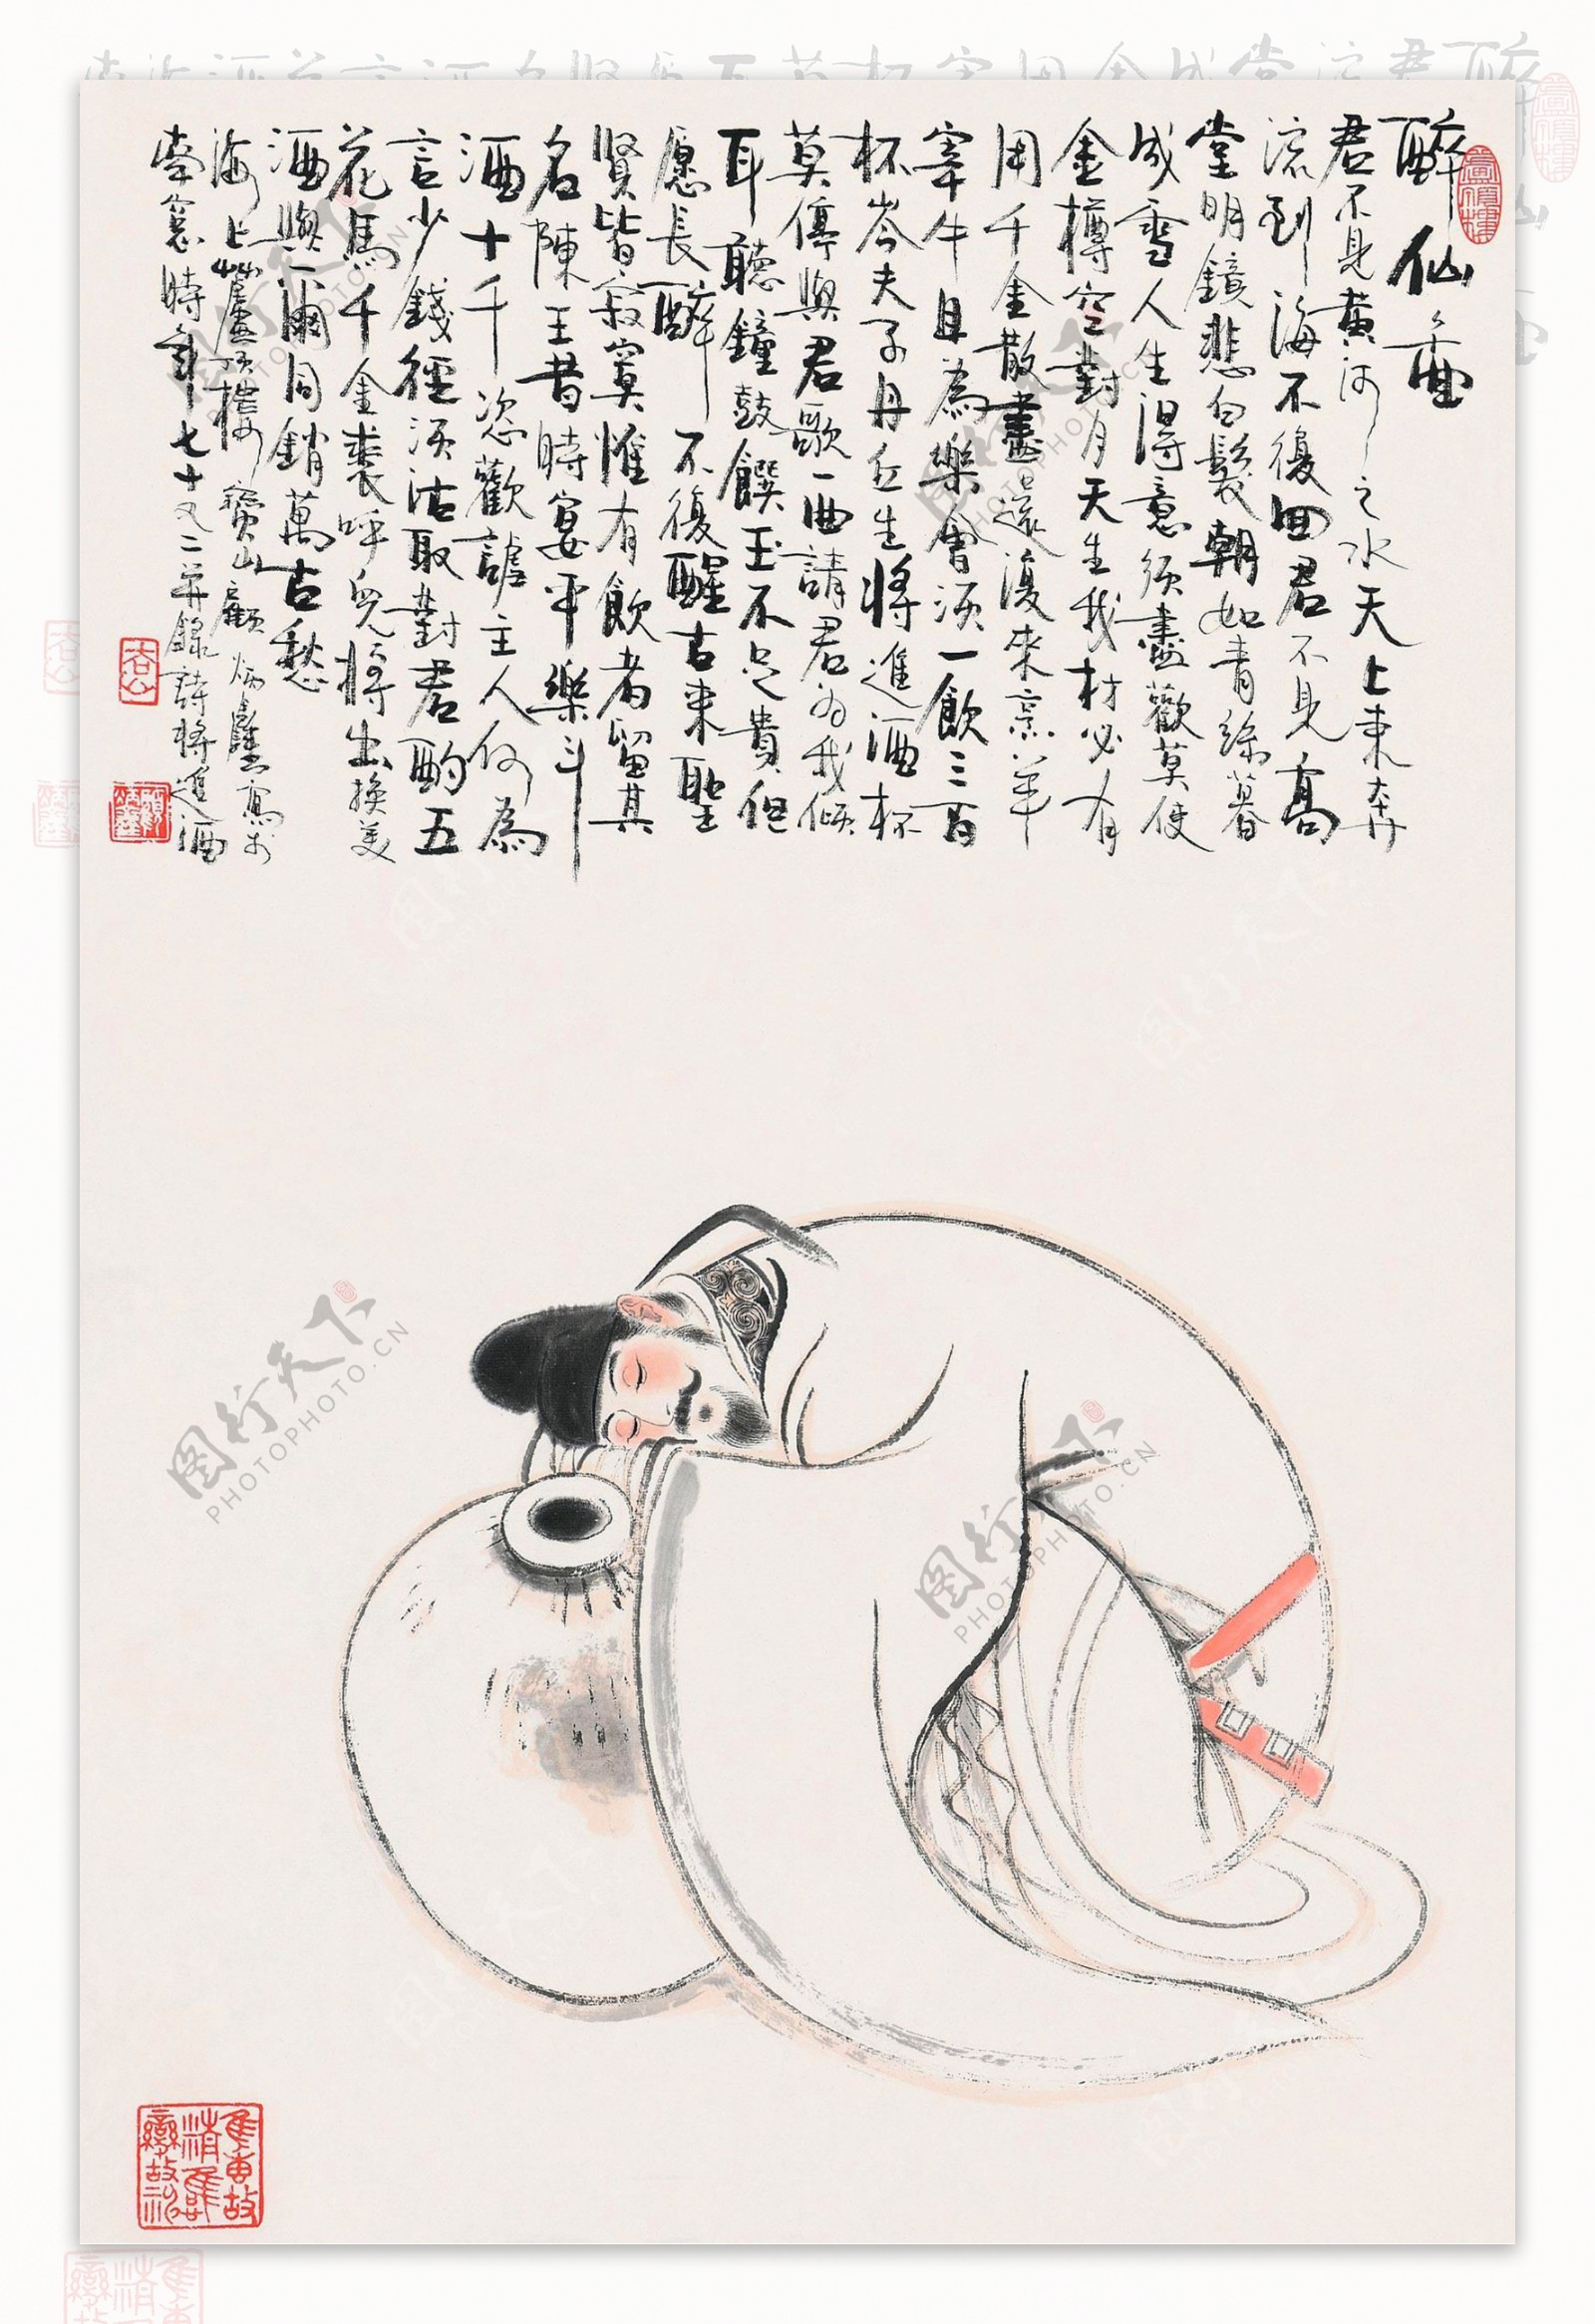 醉仙圖
君不見黃河之水天上來奔
流到海不復回君不見高
堂明鏡悲白髮朝如青絲暮
成雪人生得意須盡歡莫使
金樽空對月天生我材必有
用千金散盡還復來烹羊
宰牛且為樂會須一飲三百
杯岑夫子丹丘生將進酒杯
莫停與君歌一曲請君為我傾
耳聽鐘鼓饌玉不足貴但
愿長醉不復醒古來聖
賢皆寂寞惟有飲者留其
名陳王昔時宴平樂斗
酒十千恣歡謔主人何為
言少錢徑須沽取對君酌五
花馬千金裘呼兒將出換美
酒與爾同銷萬古愁
海上蘆頂樓寶山顧炳鑫寫於
南窗時年七十又二并錄詩將進酒
图行天下
PHOTOPHOTO.CN
图行天下
PHOTOPHOTO.CN